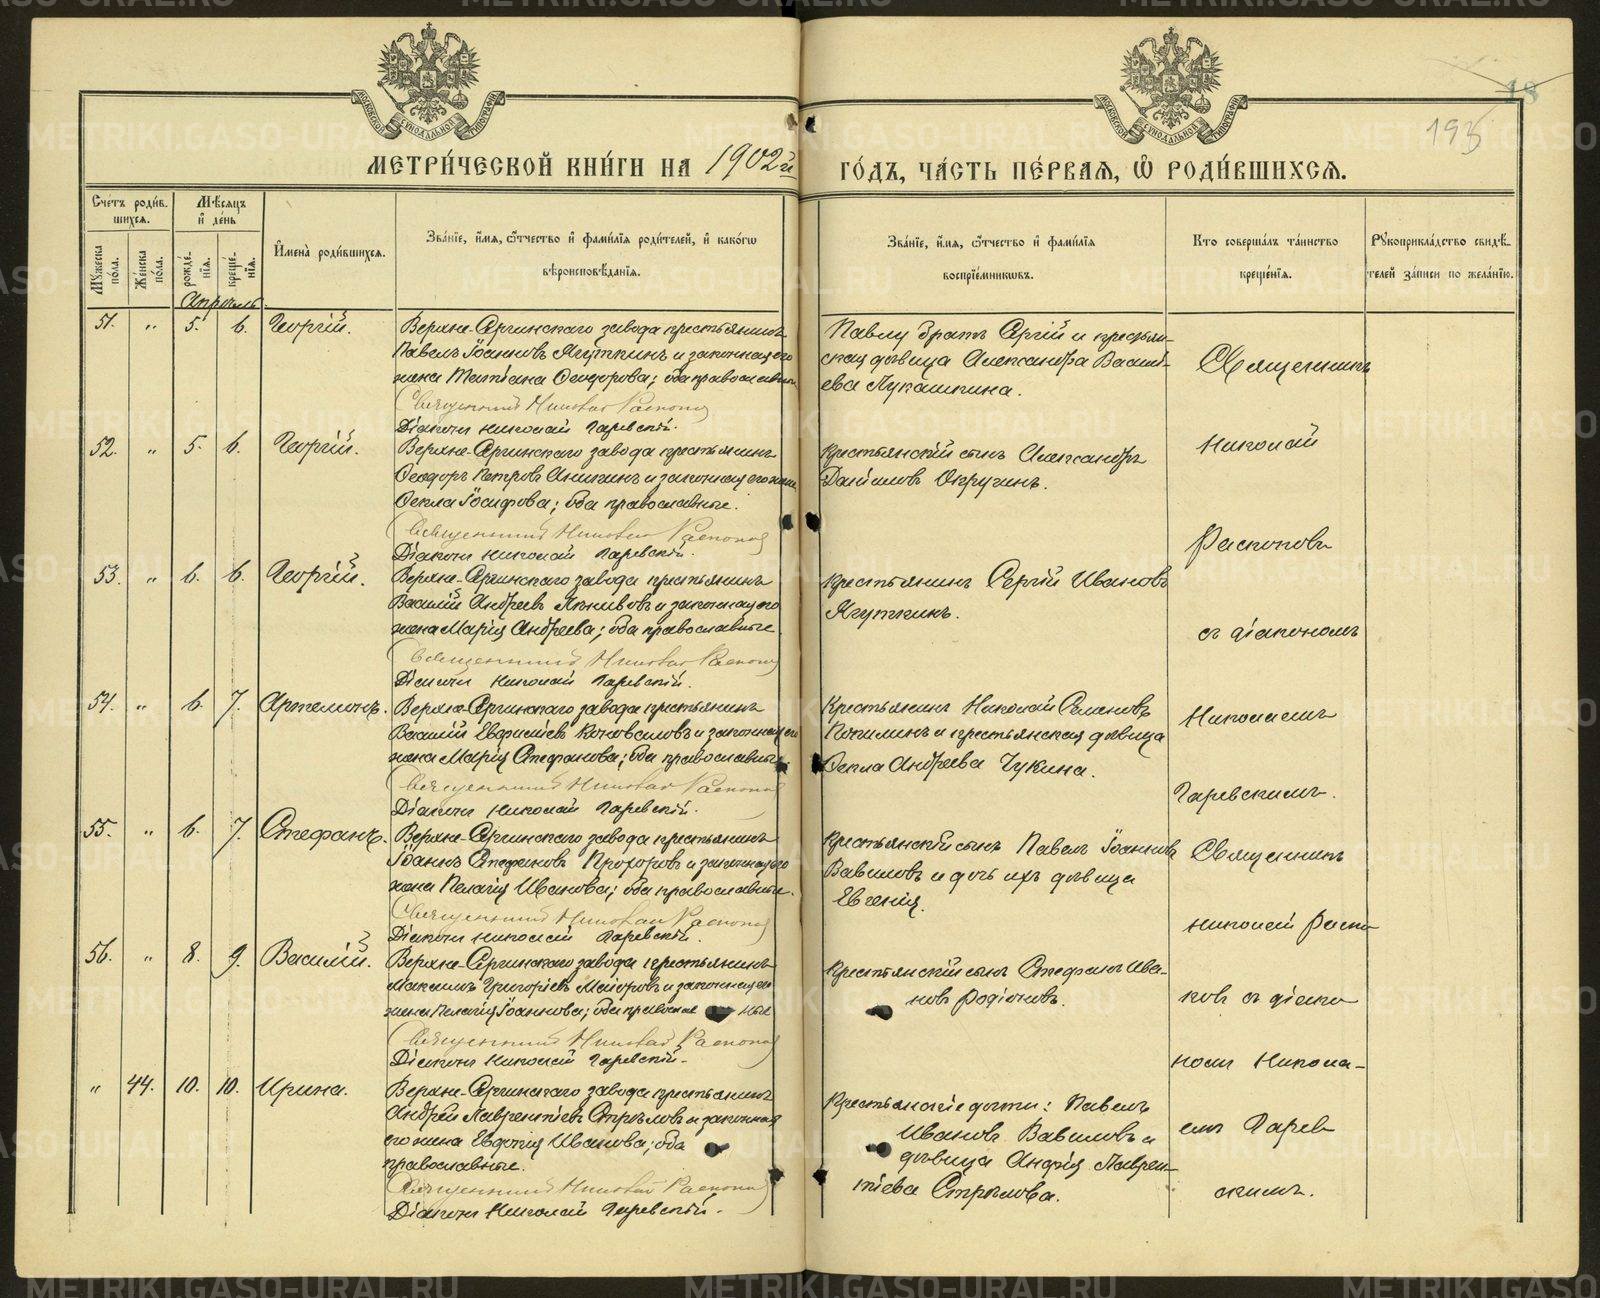 МЕТРИ́ЧЕСКОЙ КНИ́ГИ НА 1902й ГО́ДЪ, ЧА́СТЬ ПЕ́РВАЯ, Ѽ РОДИ́ВШИХСЯ.
193
18
Сче́тъ роди́в-
шихся.
Мѣ́сяцъ
и҆ де́нь
Му́жеска по́ла.
Же́нска по́ла.
рожде́-
нїя.
креще́-
нїя.
И҆мена̀ роди́вшихся.
Зва́нїе, и҆́мя, ѻ҆́тчество и҆ фами́лїя роди́телей, и҆ како́гѡ
вѣроисповѣ́данїя.
Зва́нїе, и҆́мя, ѻ҆́тчество и҆ фами́лїя
воспрїе́мниковъ.
Кто̀ соверша́лъ та́инство
креще́нїя.
Рукоприкла́дство свидѣ́-
телей за́писи по жела́нїю.
Апрѣль.
51. „ 5. 6. Георгій.
Верхне-Сергинскаго завода крестьянинъ
Павелъ Іоанновъ Ягуткинъ и законная его
жена Татіана Ѳеодорова; оба православные
Священникъ Николай Распоповъ
Діаконъ Николай Гаревскій.
Павлу братъ Сергій и крестьян-
ская дѣвица Александра Василь-
ева Лукашкина.
Священникъ
52. „ 5. 6. Георгій.
Верхне-Сергинскаго завода крестьянинъ
Ѳеодоръ Петровъ Аникинъ и законная его жена
Ѳекла Іосифова; оба православные.
Священникъ Николай Распоповъ
Діаконъ Николай Гаревскій.
Крестьянскій сынъ Александръ
Даніиловъ
Николай
Распоповъ
53. „ 6. 6. Георгій.
Верхне-Сергинскаго завода крестьянинъ
Василій Андреевъ и законная его
жена Марія Андреева; оба православные
Священникъ Николай Распоповъ
Діаконъ Николай Гаревскій.
Крестьянинъ Сергій Ивановъ
Ягуткинъ.
съ діакономъ
54. „ 6. 7. Артемонъ.
Верхне-Сергинскаго завода крестьянинъ
Василій Евфиміевъ Коноваловъ и законная его
жена Марія Стефанова; оба православные
Священникъ Николай Распоповъ
Діаконъ Николай Гаревскій.
Крестьянинъ Николай
и крестьянская дѣвица
Ѳекла Андреева Чукина.
Николаемъ
Гаревскимъ.
55. „ 6. 7. Стефанъ.
Верхне-Сергинскаго завода крестьянинъ
Іоаннъ Стефановъ Прохоровъ и законная его
жена Пелагія Иванова; оба православные.
Священникъ Николай Распоповъ
Діаконъ Николай Гаревскій.
Крестьянскій сынъ Павелъ Іоанновъ
Вавиловъ и дочь ихъ дѣвица
Евгенія.
Священникъ
Николай Распо-
56. „ 8. 9. Василій.
Верхне-Сергинскаго завода крестьянинъ
Максимъ Григоріевъ Маіоровъ и законная его
жена Пелагія Іоаннова; оба православные
Священникъ Николай Распоповъ
Діаконъ Николай Гаревскій.
Крестьянскій сынъ Стефанъ Ива-
новъ Родіоновъ.
повъ съ діако-
номъ Никола-
„ 44. 10. 10. Ирина.
Верхне-Сергинскаго завода крестьянинъ
Андрей Лаврентіевъ Стрѣловъ и законная
его жена Евдокія Иванова; оба
православные.
Священникъ Николай Распоповъ
Діаконъ Николай Гаревскій.
Крестьянскіе дѣти: Павелъ
Ивановъ Вавиловъ и
дѣвица Анфія Лаврен-
тіева Стрѣлова.
емъ Гарев-
скимъ.
METRIKI.GASO-URAL.RU